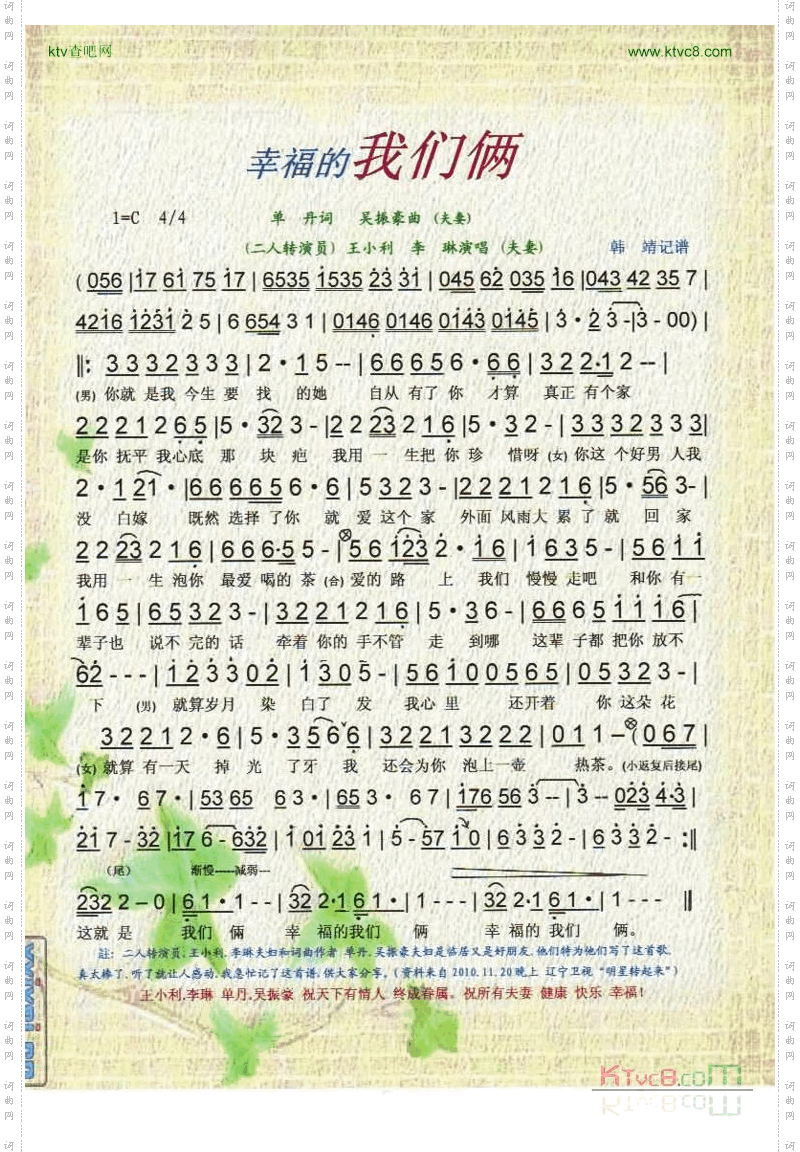 ktv查吧网 www.ktvc8.com
幸福的我们俩
1=C 4/4 单 丹词 吴振豪曲 (夫妻)
(二人转演员) 王小利 李 琳演唱 (夫妻) 韩 靖记谱
( 056 |17 61 75 17 | 6535 1535 23 31 | 045 62 035 16 |043 42 35 7 |
4216 1231 2 5 | 6 654 3 1 | 0146 0146 0143 0145 | 3 · 2 3 -|3 - 00) |
‖: 3 3 3 2 3 3 3 | 2 · 1 5 -- | 6 6 6 5 6 · 6 6 | 3 2 2·1 2 -- |
(男) 你就 是我 今生 要 找 的她 自从 有了 你 才算 真正 有个家
2 2 2 1 2 6 5 |5 · 32 3 - |2 2 23 2 1 6 |5 · 3 2 - | 3 3 3 2 3 3 3|
是你 抚平 我心底 那 块 疤 我用 一 生把 你 珍 惜呀 (女) 你这 个好男 人我
2 · 1 21 · |6 6 6 6 5 6 · 6 | 3 5 2 3 - | 2 2 2 1 2 1 6 |5 · 56 3- |
没 白嫁 既然 选择 了你 就 爱这 个 家 外面 风雨大 累 了 就 回 家
2 2 23 2 1 6 | 6 6 6·5 5 - |5 6 123 2 · 1 6 | 1 6 3 5 - | 5 6 1 1
我用 一 生 泡你 最爱 喝的 茶 (合) 爱的 路 上 我们 慢慢 走吧 和你 有一
1 6 5 | 6 5 3 2 3 - | 3 2 2 1 2 1 6 | 5 · 3 6 - |6 6 6 5 1 1 1 6 |
辈子也 说不 完的 话 牵着 你的 手不管 走 到哪 这辈 子都 把你 放不
62 - - - | 1 2 3 3 0 2 | 1 3 0 5 - | 5 6 1 0 0 5 6 5 | 0 5 3 2 1 2 |
下 (男) 就算岁月 染 白了 发 我心 里 还开着 你 这朵 花
3 2 2 1 2 · 6 | 5 · 3 5 6 6 | 3 2 2 1 3 2 2 2 | 0 1 1 - ( 0 6 7 |
(女) 就算 有一天 掉 光 了牙 我 还会为你 泡上一壶 热茶。(小返复后接尾)
1 7 · 6 7 · | 53 65 6 3 · | 65 3 · 6 7 | 176 56 3 -- | 3 -- 023 4·3 |
21 7 - 32 |17 6 - 632 | 1 01 23 1 | 5 - 57 1 0 | 6 3 3 2 - | 6 3 3 2 - :‖
(尾) 渐慢-----减弱---
232 2 – 0 | 6 1 · 1 - - | 32 2·1 6 1 · | 1 - - - | 32 2·1 6 1 · | 1 - - - ‖
这就 是 我们 俩 幸 福的我们 俩 幸 福的 我们 俩。
註: 二人转演员:王小利.李琳夫妇和词曲作者 单丹.吴振豪夫妇是临居又是好朋友.他们特为他们写了这首歌.
真太棒了.听了就让人感动.我急忙记了这首谱.供大家分享。(资料来自 2010.11.20晚上 辽宁卫视 "明星转起来")
王小利,李琳 单丹,吴振豪 祝天下有情人 终成眷属。祝所有夫妻 健康 快乐 幸福!
KTvc8.com